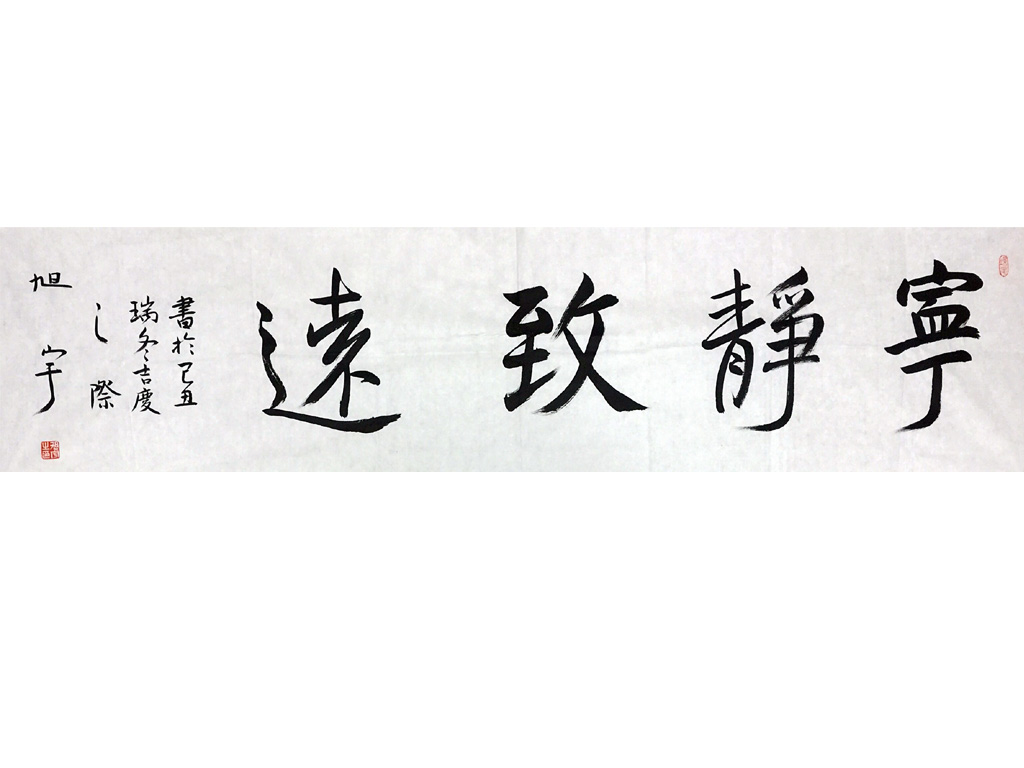 寧靜致遠
書於己丑
瑞冬吉慶
之際
旭宇